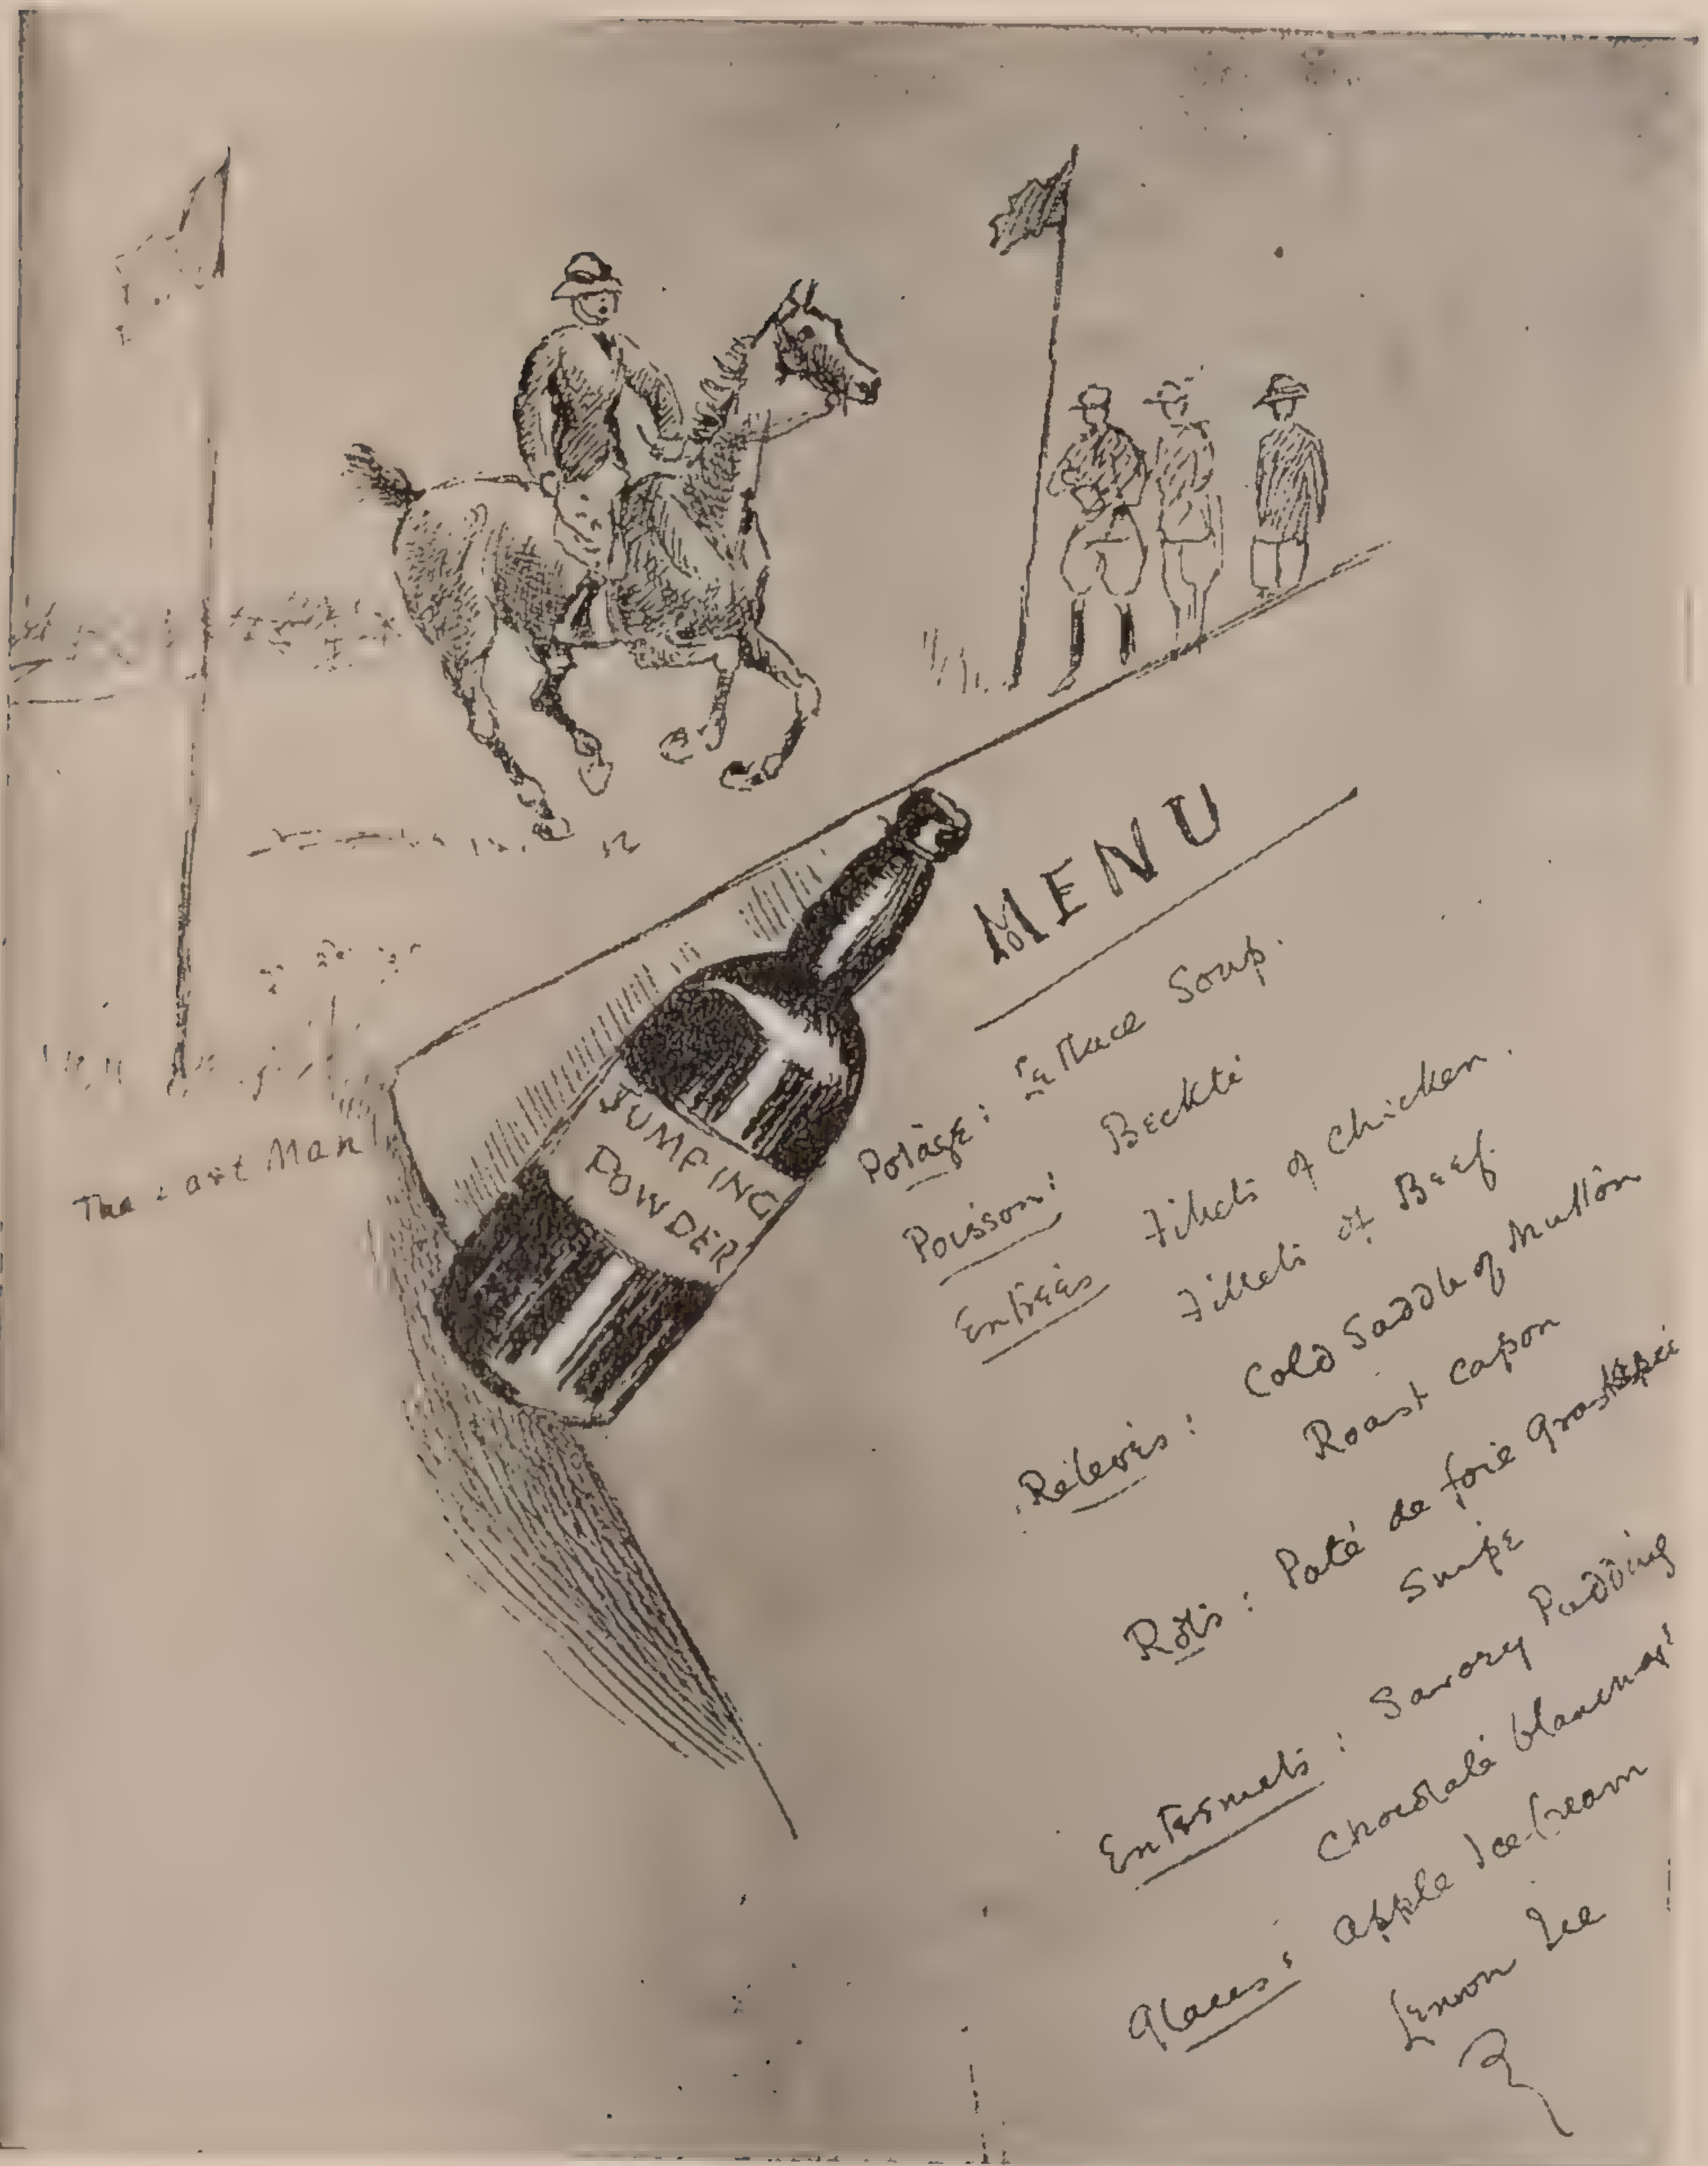 The Last Man!
JUMPING
POWDER
MENU
Potâge: Lettuce Soup.
Poisson: Beckti
Entrées Fillets of Chicken.
Fillets of Beef.
Rélevés: Cold Saddle of Mutton
Roast Capon
Rôts: Paté de foie gras
Snipe
Entremets: Savory Pudding
Chocolate blancmange
Glaces: Apple Ice-Cream
Lemon Ice